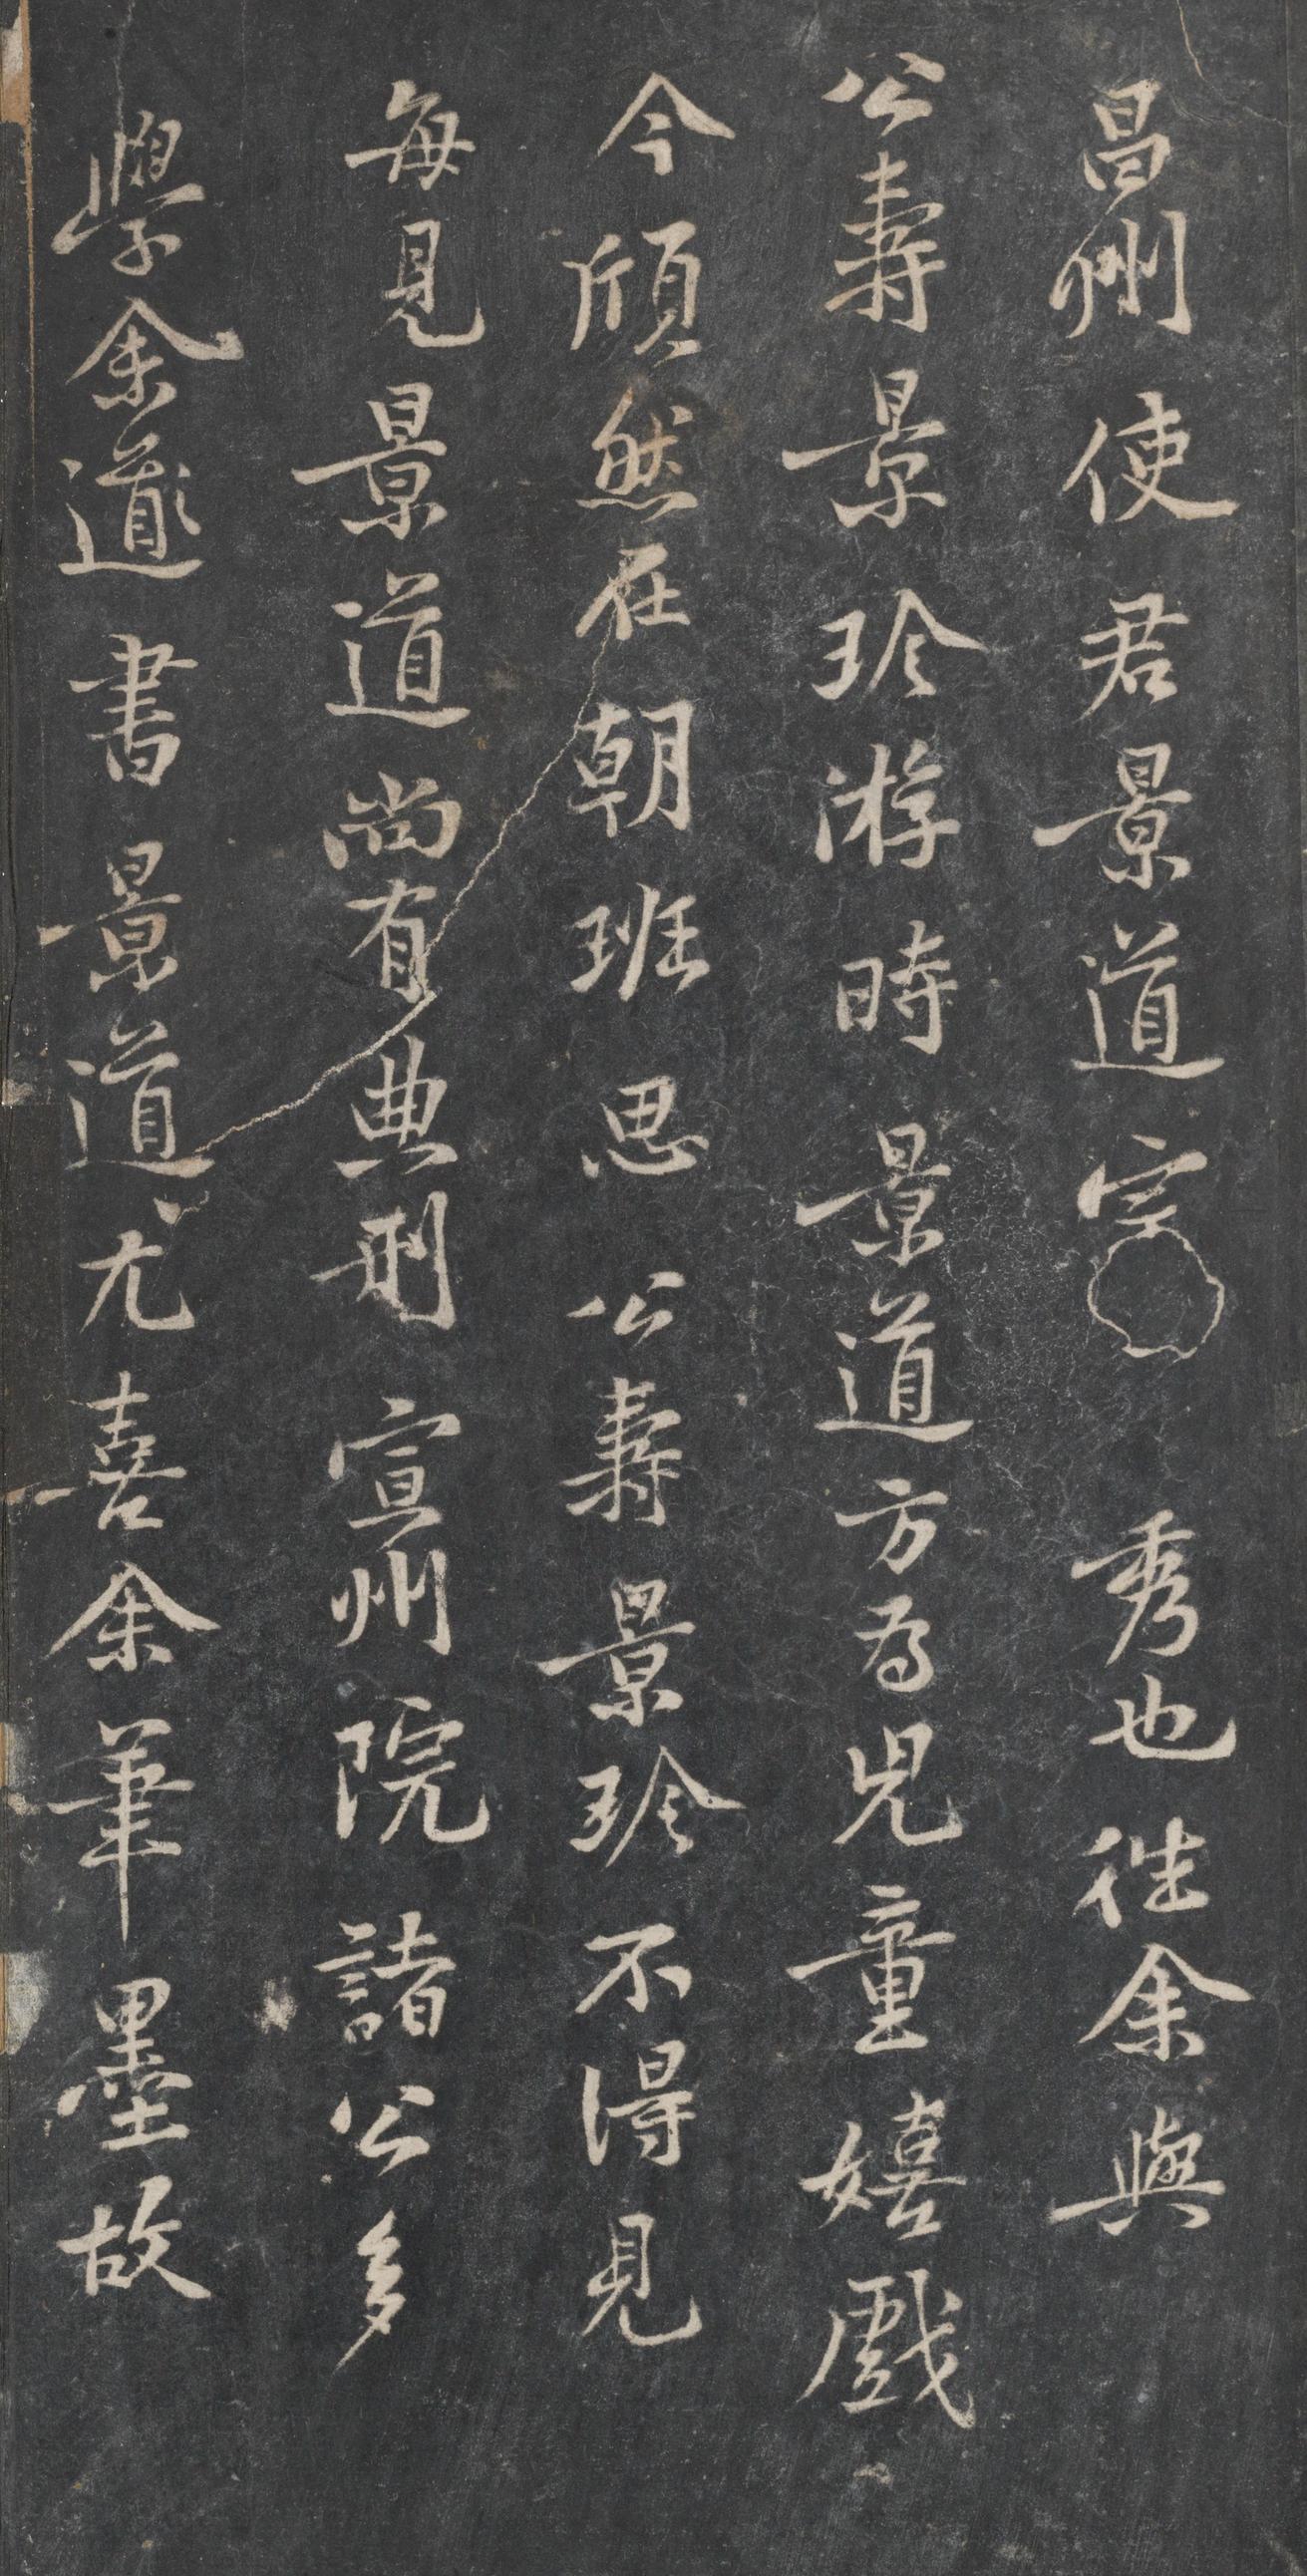 昌州使君景道宗秀也往余與
公壽景珍游時景道方為兒童嬉戲
今頎然在朝班思公壽景珍不得見
每見景道尚有典刑宣州院諸公多
學余道書景道尤喜余筆墨故